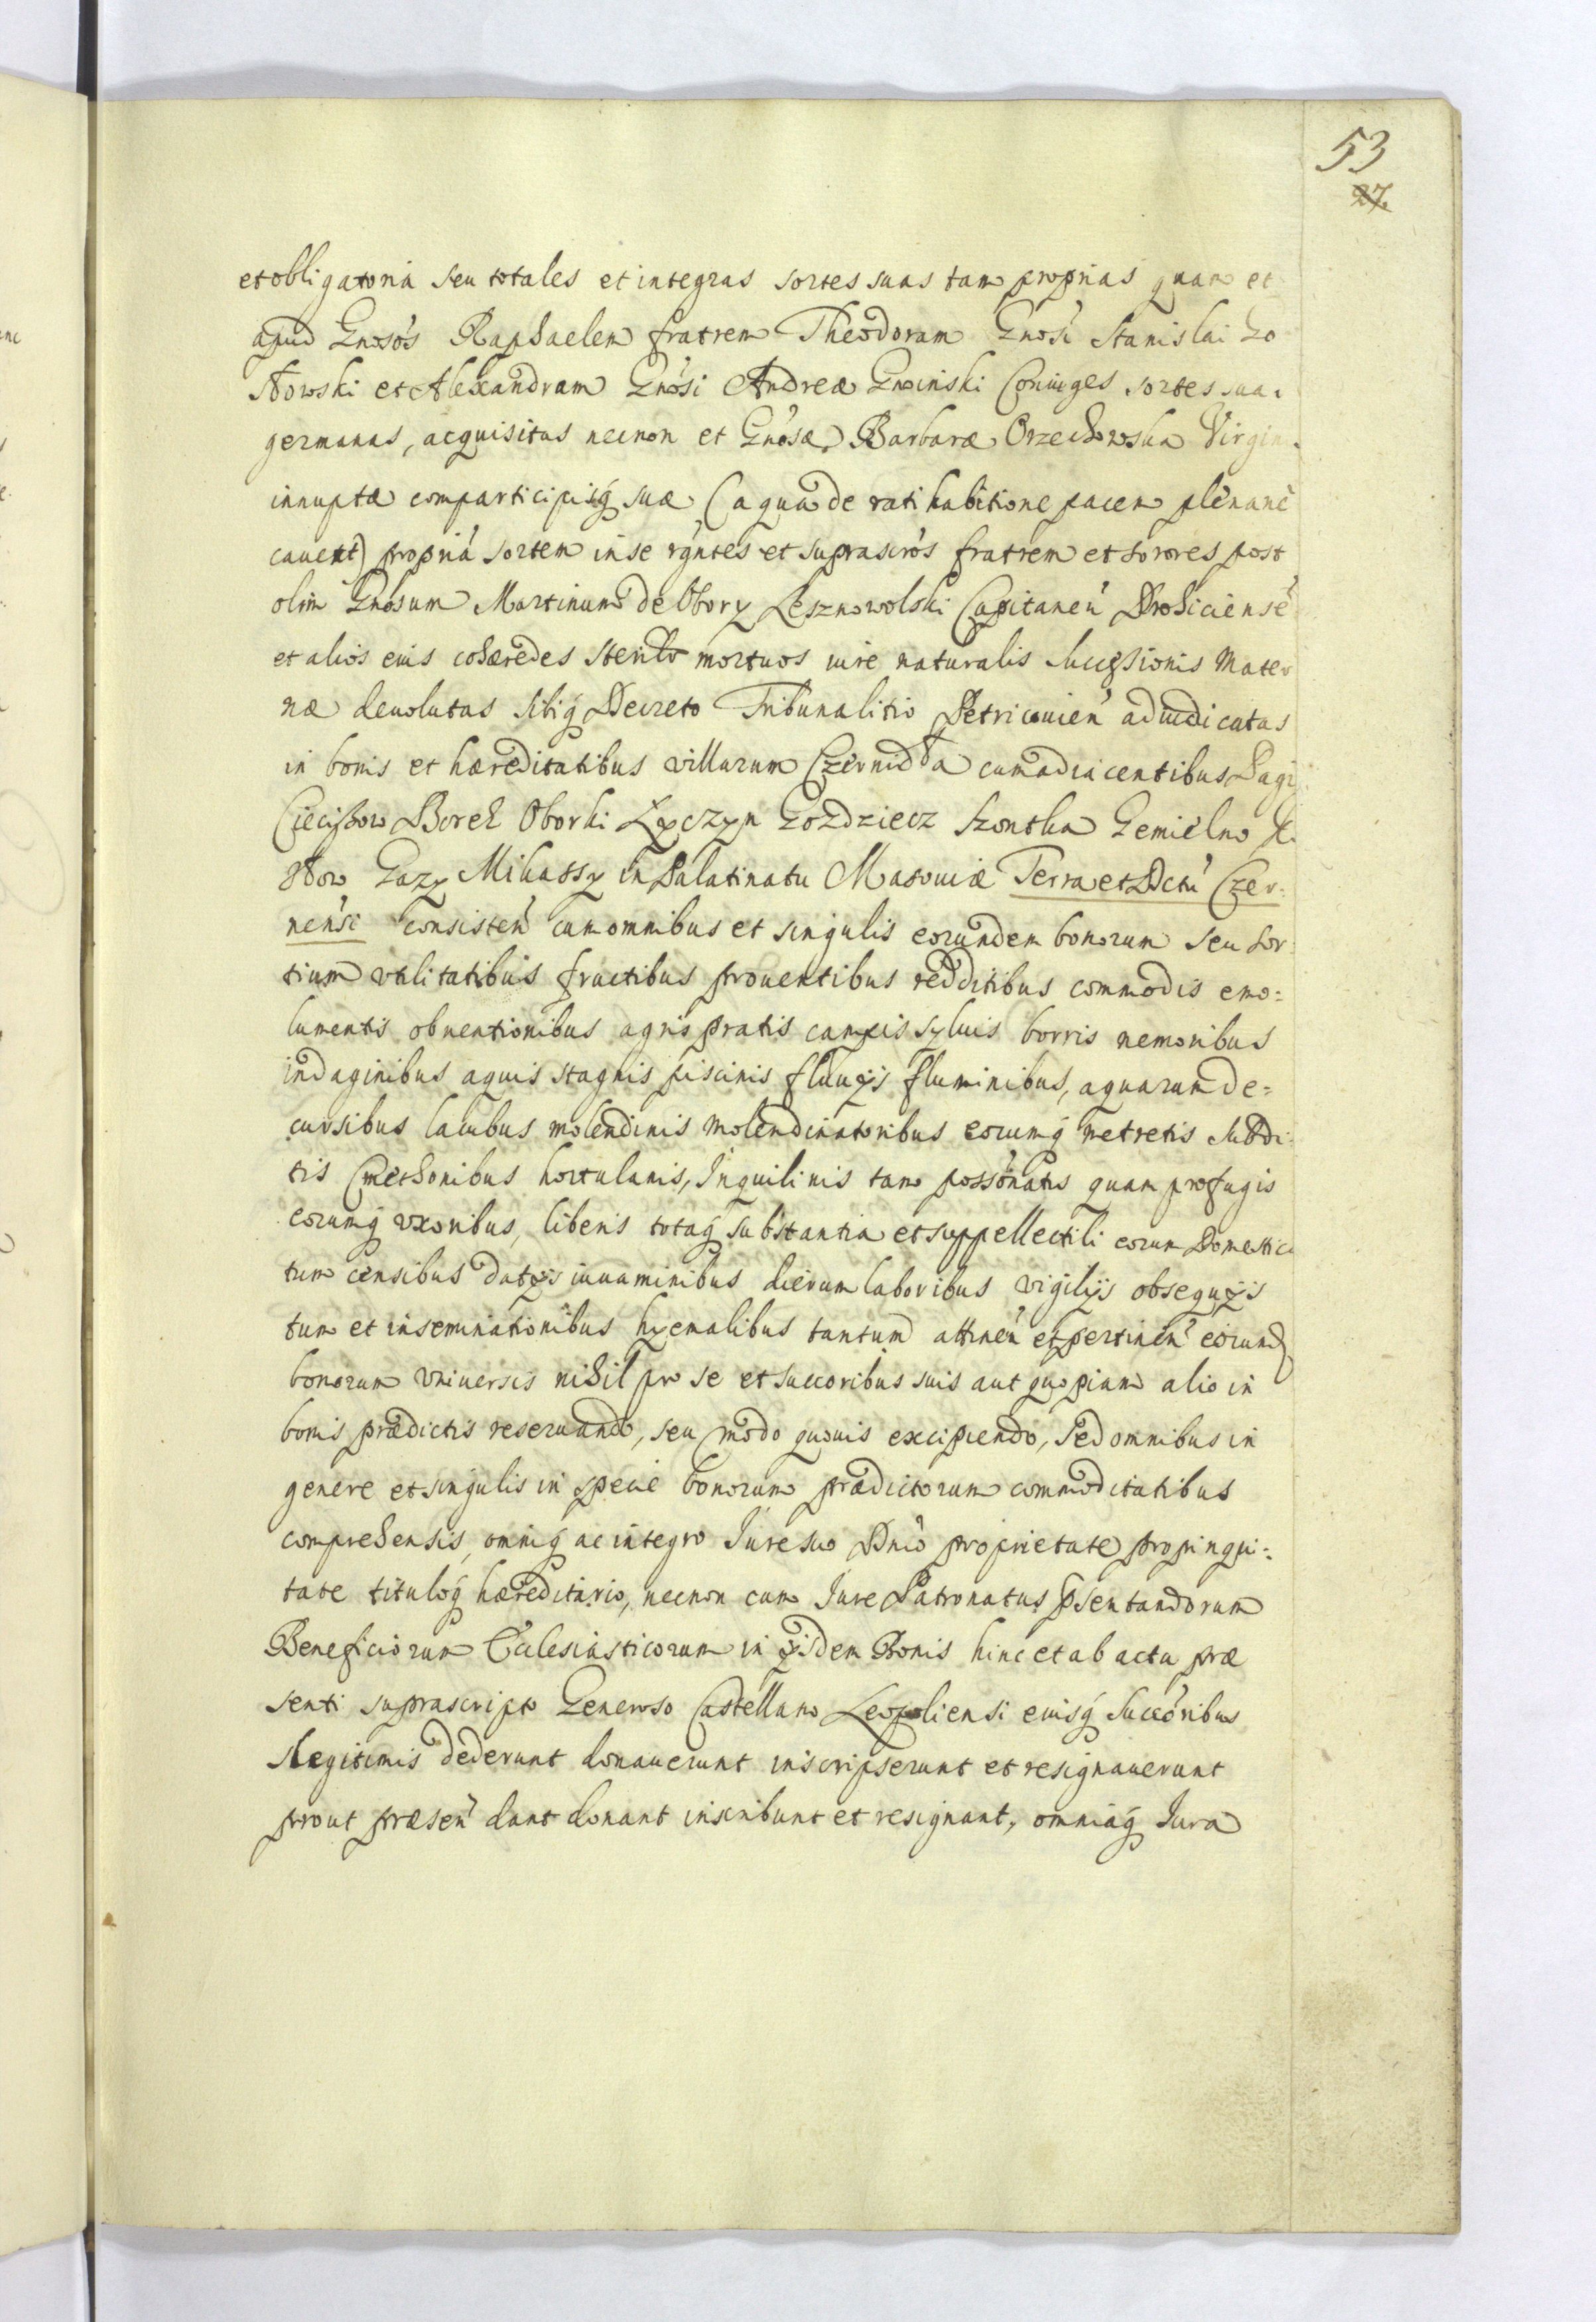 53
27.
et obligatoria seu totales et integras sortes suas tam proprias quam et
apud Gnosos Raphaelem fratrem Theodoram Gnosi Stanislai Go
stowski et Alexandram Gnosi Andreæ Gnoinski Coniuges sortes suas
germanas, acquisitas necnon et Gnosæ Barbaræ Orzechowska Virgin
innuptæ comparticipisq suæ (a qua de ratihabitione pacem plenanè
cauent) propriá sortem in se rgntes et suprascros fratrem et sorores post
olim Gnosum Martinum de Obory Lesznowolski Capitaneu Drohiciense
et alios eius cohæredes sterile mortuos iure naturalis Succssionis Mater
næ deuolutas sibiq Decreto Tribunalitio Petricouien adiudicatas
in bonis et hæreditatibus villarum Czernidda cum adiacentibus Pagi
Ciecishow Borek Oborki Łyczyn Gozdziecz Szontka Gemielno
stow Gazy Mikassy in Palatinatu Masouiæ Terra et Dctu Czer:
nensi consisten cum omnibus et singulis eorundem bonorum seu sor
tium vtilitatibus fructibus prouentibus redditibus commodis emo:
lumentis obuentionibus agris pratis campis syluis borris nemoribus
indaginibus aquis stagnis piscinis fluuys fluminibus, aquarum de:
cursibus lacubus molendinis molendinatoribus eorumq metretis subdi:
tis Cmethonibus hortulanis, Inquilinis tam possonatis quam profugis
eorumq vxoribus, liberis totaq substantia et suppellectili eorum Domestica
tum censibus datys iuuaminibus dierum laboribus vigilys obsequys
tum et inseminationibus hyemalibus tantum attinen et pertinen eorund
bonorum vniuersis nihil pro se et succoribus suis aut quopiam alio in
bonis prædictis reseruando, seu modo quouis excipiendo, sed omnibus in
genere et singulis in specie bonorum prædictorum commoditatibus
comprehensis, omniq ac integro Iure suo Dnio proprietate propinqui:
tate tituloq hæreditario, necnon cum Iure Patronatus psentandorum
Beneficiorum Ecclesiasticorum in ysdem Bonis hinc et ab actu præ
senti suprascripto Generoso Castellano Leopoliensi eiusq Succoribus
Legitimis dederunt donauerunt inscripserunt et resignauerunt
prout præsen dant donant inscribunt et resignant, omniaq Iura